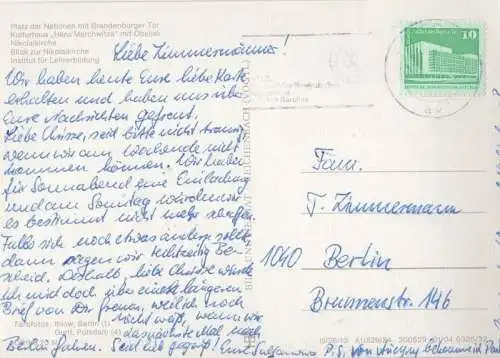 Platz der Nationen mit Brandenburger Tor
Kulturhaus „Hans Marchwitza“ mit Obelisk
Nikolaikirche
Blick zur Nikolaikirche
Institut für Lehrerbildung
Liebe Zimmermänner!
Wir haben heute Eure liebe Karte
erhalten und haben uns über
Eure Nachrichten gefreut.
Liebe Christe, seid bitte nicht traurig,
wenn wir am Wochende nicht
kommen können. Wir haben
für Sonnabend eine Einladung
und am Sonntag würden wir
es bestimmt nicht mehr schaffen.
Falls sich noch etwas ändern sollte
dann sagen wir rechtzeitig Be-
scheid. Deshalb, liebe Christe, würde
ich mich doch über einen längeren
Brief von Dir freuen, weil ich noch
nicht weiß, wann wir
das nächste Mal nach
Berlin fahren. Seid lieb gegrüßt! Eure
P.S. von
10
Fam.
T. Zimmermann
1040 Berlin
Brunnenstr. 146
BILD UND HEIMAT REICHENBACH (VOGTL)
Farbfotos: Ihlow, Berlin (1)
Gurtl, Potsdam (4)